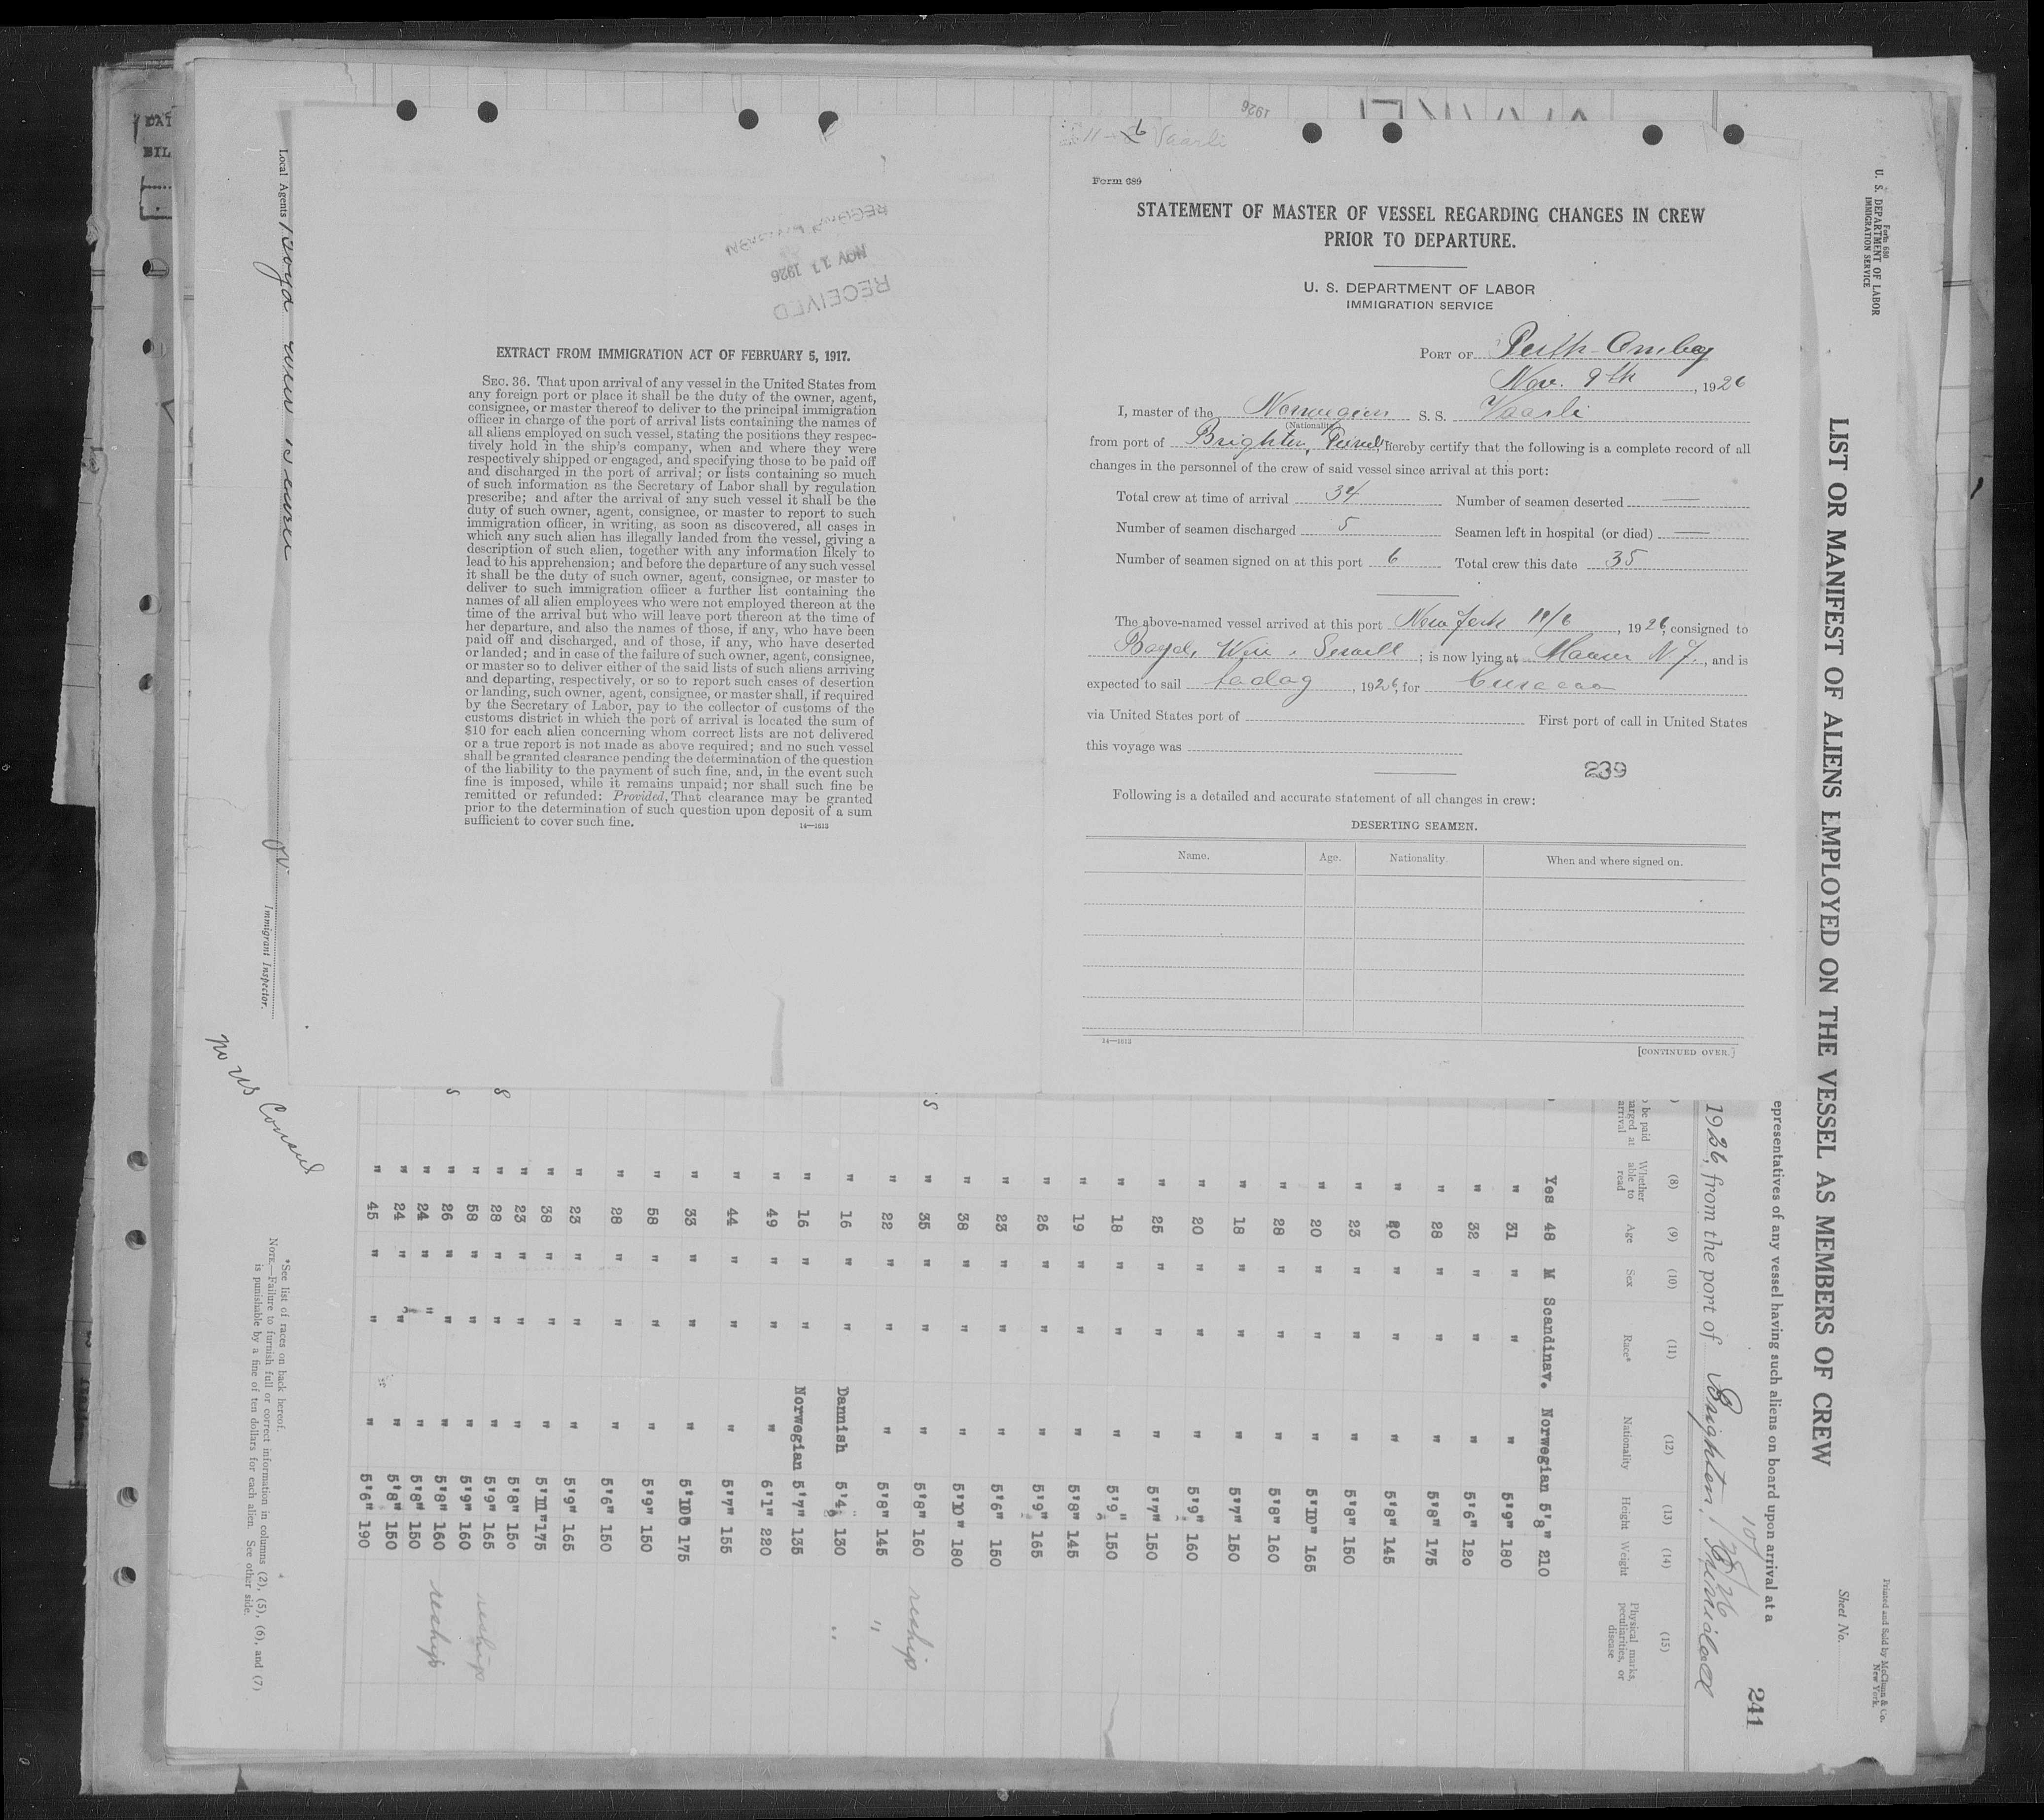 EXTRACT FROM IMMIGRATION ACT OF FEBRUARY 5, 1917.
SEC. 36. That upon arrival of any vessel in the United States from
any foreign port or place it shall be the duty of the owner, agent,
consignee, or master thereof to deliver to the principal immigration
officer in charge of the port of arrival lists containing the names of
all aliens employed on such vessel, stating the positions they respec-
tively hold in the ship's company, when and where they were
respectively shipped or engaged, and specifying those to be paid off
and discharged in the port of arrival; or lists containing so much
of such information as the Secretary of Labor shall by regulation
prescribe; and after the arrival of any such vessel it shall be the
duty of such owner, agent, consignee, or master to report to such
immigration officer, in writing, as soon as discovered, all cases in
which any such alien has illegally landed from the vessel, giving a
description of such alien, together with any information likely to
lead to his apprehension; and before the departure of any such vessel
it shall be the duty of such owner, agent, consignee, or master to
deliver to such immigration officer a further list containing the
names of all alien employees who were not employed thereon at the
time of the arrival but who will leave port thereon at the time of
her departure, and also the names of those, if any, who have been
paid off and discharged, and of those, if any, who have deserted
or landed; and in case of the failure of such owner, agent, consignee,
or master so to deliver either of the said lists of such aliens arriving
and departing, respectively, or so to report such cases of desertion
or landing, such owner, agent, consignee, or master shall, if required
by the Secretary of Labor, pay to the collector of customs of the
customs district in which the port of arrival is located the sum of
$10 for each alien concerning whom correct lists are not delivered
or a true report is not made as above required; and no such vessel
shall be granted clearance pending the determination of the question
of the liability to the payment of such fine, and, in the event such
fine is imposed, while it remains unpaid; nor shall such fine be
remitted or refunded: Provided, That clearance may be granted
prior to the determination of such question upon deposit of a sum
sufficient to cover such fine.
14—1613
RECEIVED
NOV 11 1926
1926
Vaarli
Form 689
STATEMENT OF MASTER OF VESSEL REGARDING CHANGES IN CREW
PRIOR TO DEPARTURE.
U. S. DEPARTMENT OF LABOR
IMMIGRATION SERVICE
PORT OF Perth Amboy
Nov. 9th, 1926
I, master of the Norwegian S. S. Vaarli
(Nationality)
from port of Brighton, hereby certify that the following is a complete record of all
changes in the personnel of the crew of said vessel since arrival at this port:
Total crew at time of arrival 34 Number of seamen deserted —
Number of seamen discharged 5 Seamen left in hospital (or died) —
Number of seamen signed on at this port 6 Total crew this date 35
The above-named vessel arrived at this port New York 11/6, 1926, consigned to
Boyd, Weir & Sewell; is now lying at N J., and is
expected to sail today, 1926, for Curacao
via United States port of First port of call in United States
this voyage was
239
Following is a detailed and accurate statement of all changes in crew:
DESERTING SEAMEN.
Name. Age. Nationality. When and where signed on.
14—1613
[CONTINUED OVER.]
Form 680
U. S. DEPARTMENT OF LABOR
IMMIGRATION SERVICE
LIST OR MANIFEST OF ALIENS EMPLOYED ON THE VESSEL AS MEMBERS OF CREW
Sheet No.
Printed and Sold by McClunn & Co.
New York.
241
epresentatives of any vessel having such aliens on board upon arrival at a
1926, from the port of Brighton, Trinidad
(8) (9) (10) (11) (12) (13) (14) (15)
be paid
arged at
arrival
Whether
able to
read
Age Sex Race* Nationality Height Weight
Physical marks,
peculiarities, or
disease
Yes 48 M Scandinav. Norwegian 5'8" 210
" 31 " " " 5'9" 180
" 32 " " " 5'6" 120
" 28 " " " 5'8" 175
" 20 " " " 5'8" 145
" 23 " " " 5'8" 150
" 20 " " " 5'10" 165
" 28 " " " 5'8" 160
" 18 " " " 5'7" 150
" 20 " " " 5'9" 160
" 25 " " " 5'7" 150
" 18 " " " 5'9" 150
" 19 " " " 5'8" 145
" 26 " " " 5'9" 165
" 23 " " " 5'6" 150
" 38 " " " 5'10" 180
" 35 " " " 5'8" 160 reship
" 22 " " " 5'8" 145 "
" 16 " " Dannish 5'4" 130 "
" 16 " " Norwegian 5'7" 135
" 49 " " " 6'1" 220
" 44 " " " 5'7" 155
" 33 " " " 5'10" 175
" 58 " " " 5'9" 150
" 28 " " " 5'6" 150
" 23 " " " 5'9" 165
" 38 " " " 5'11" 175
" 23 " " " 5'8" 150
" 28 " " " 5'9" 165 reship
" 58 " " " 5'9" 160
" 26 " " " 5'8" 160 reship
" 24 " " " 5'8" 150
" 24 " " " 5'8" 150
" 45 " " " 5'6" 190
Local Agents Boyd Weir & Sewell
Immigrant Inspector.
no US Consul
*See list of races on back hereof.
NOTE.—Failure to furnish full or correct information in columns (2), (5), (6), and (7)
is punishable by a fine of ten dollars for each alien. See other side.